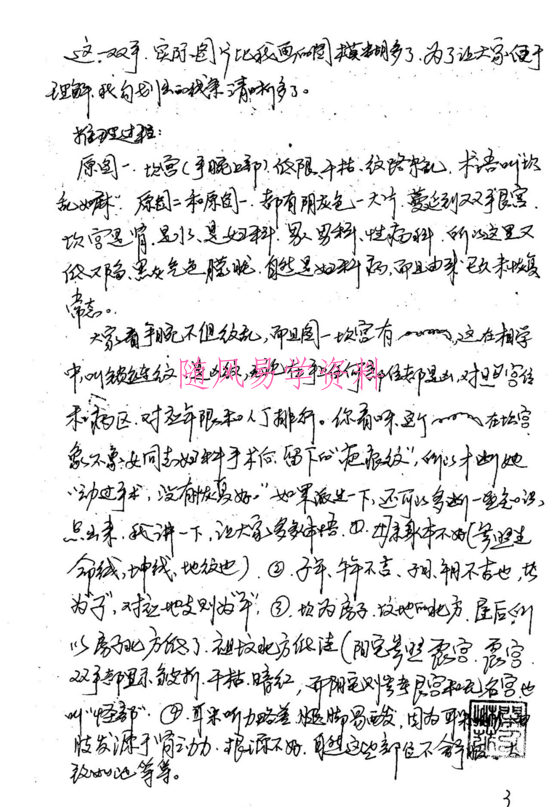 这一双手,实际图片比我画的图模糊多了,为了让大家便于
理解,我勾划的线条清晰多了。
推理过程:
原图一,坎宫(手腕上部)低限、干枯、纹路杂乱,术语叫“坎
乱如麻”。原图二和原图一,都有阴灰色一大片,蔓延到双手艮宫,
坎宫是肾、是水、是妇科,男、男科、性病科,所以这里又
低又陷,黑灰气色朦胧,自然是妇科病,而且由来已久未恢复
常态。
大家看手腕不但纹乱,而且图一坎宫有,这在相学
中,叫锁链纹,是凶纹,在手任何部位都是凶,对
病区,对应年限和人丁排行。你看呀,这个在坎宫
象不象女同志妇科手术后,留下的“疤痕纹”,所以才断她
“动过手术,没有恢复好。”如果派生一下,还可以多断一些
点出来,我讲一下,让大家多多体悟。①、母亲身体不好(参照生
命线,坤线,地纹也)。②、子年、午年不吉、子月、午月不吉也,坎
为“子”,对应地支则为“午”,③、坎为房子、坟地的北方、屋后,所
以房子北方低了,祖坟北方低洼(阳宅参照震宫,震宫
双手都显示纹断、干枯、暗红,而阴宅则参考艮宫和无名宫也
叫“怪部”。④、耳朵听力略差、腿脚易酸,因为耳朵
肢发源于肾动力,根源不好,自然这些部位不舒服,大
致如此等等。
3
随风易学资料